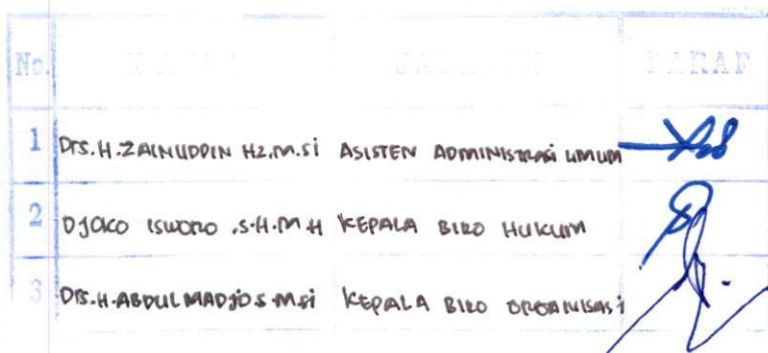 No. NAMA JABATAN PARAF
1 Drs.H.ZAINUDDIN HZ.M.Si ASISTEN ADMINISTRASI UMUM
2 DJOKO ISWORO .S.H.M.H KEPALA BIRO HUKUM
3 Drs.H.ABDUL MADJID S.M.Si KEPALA BIRO ORGANISASI